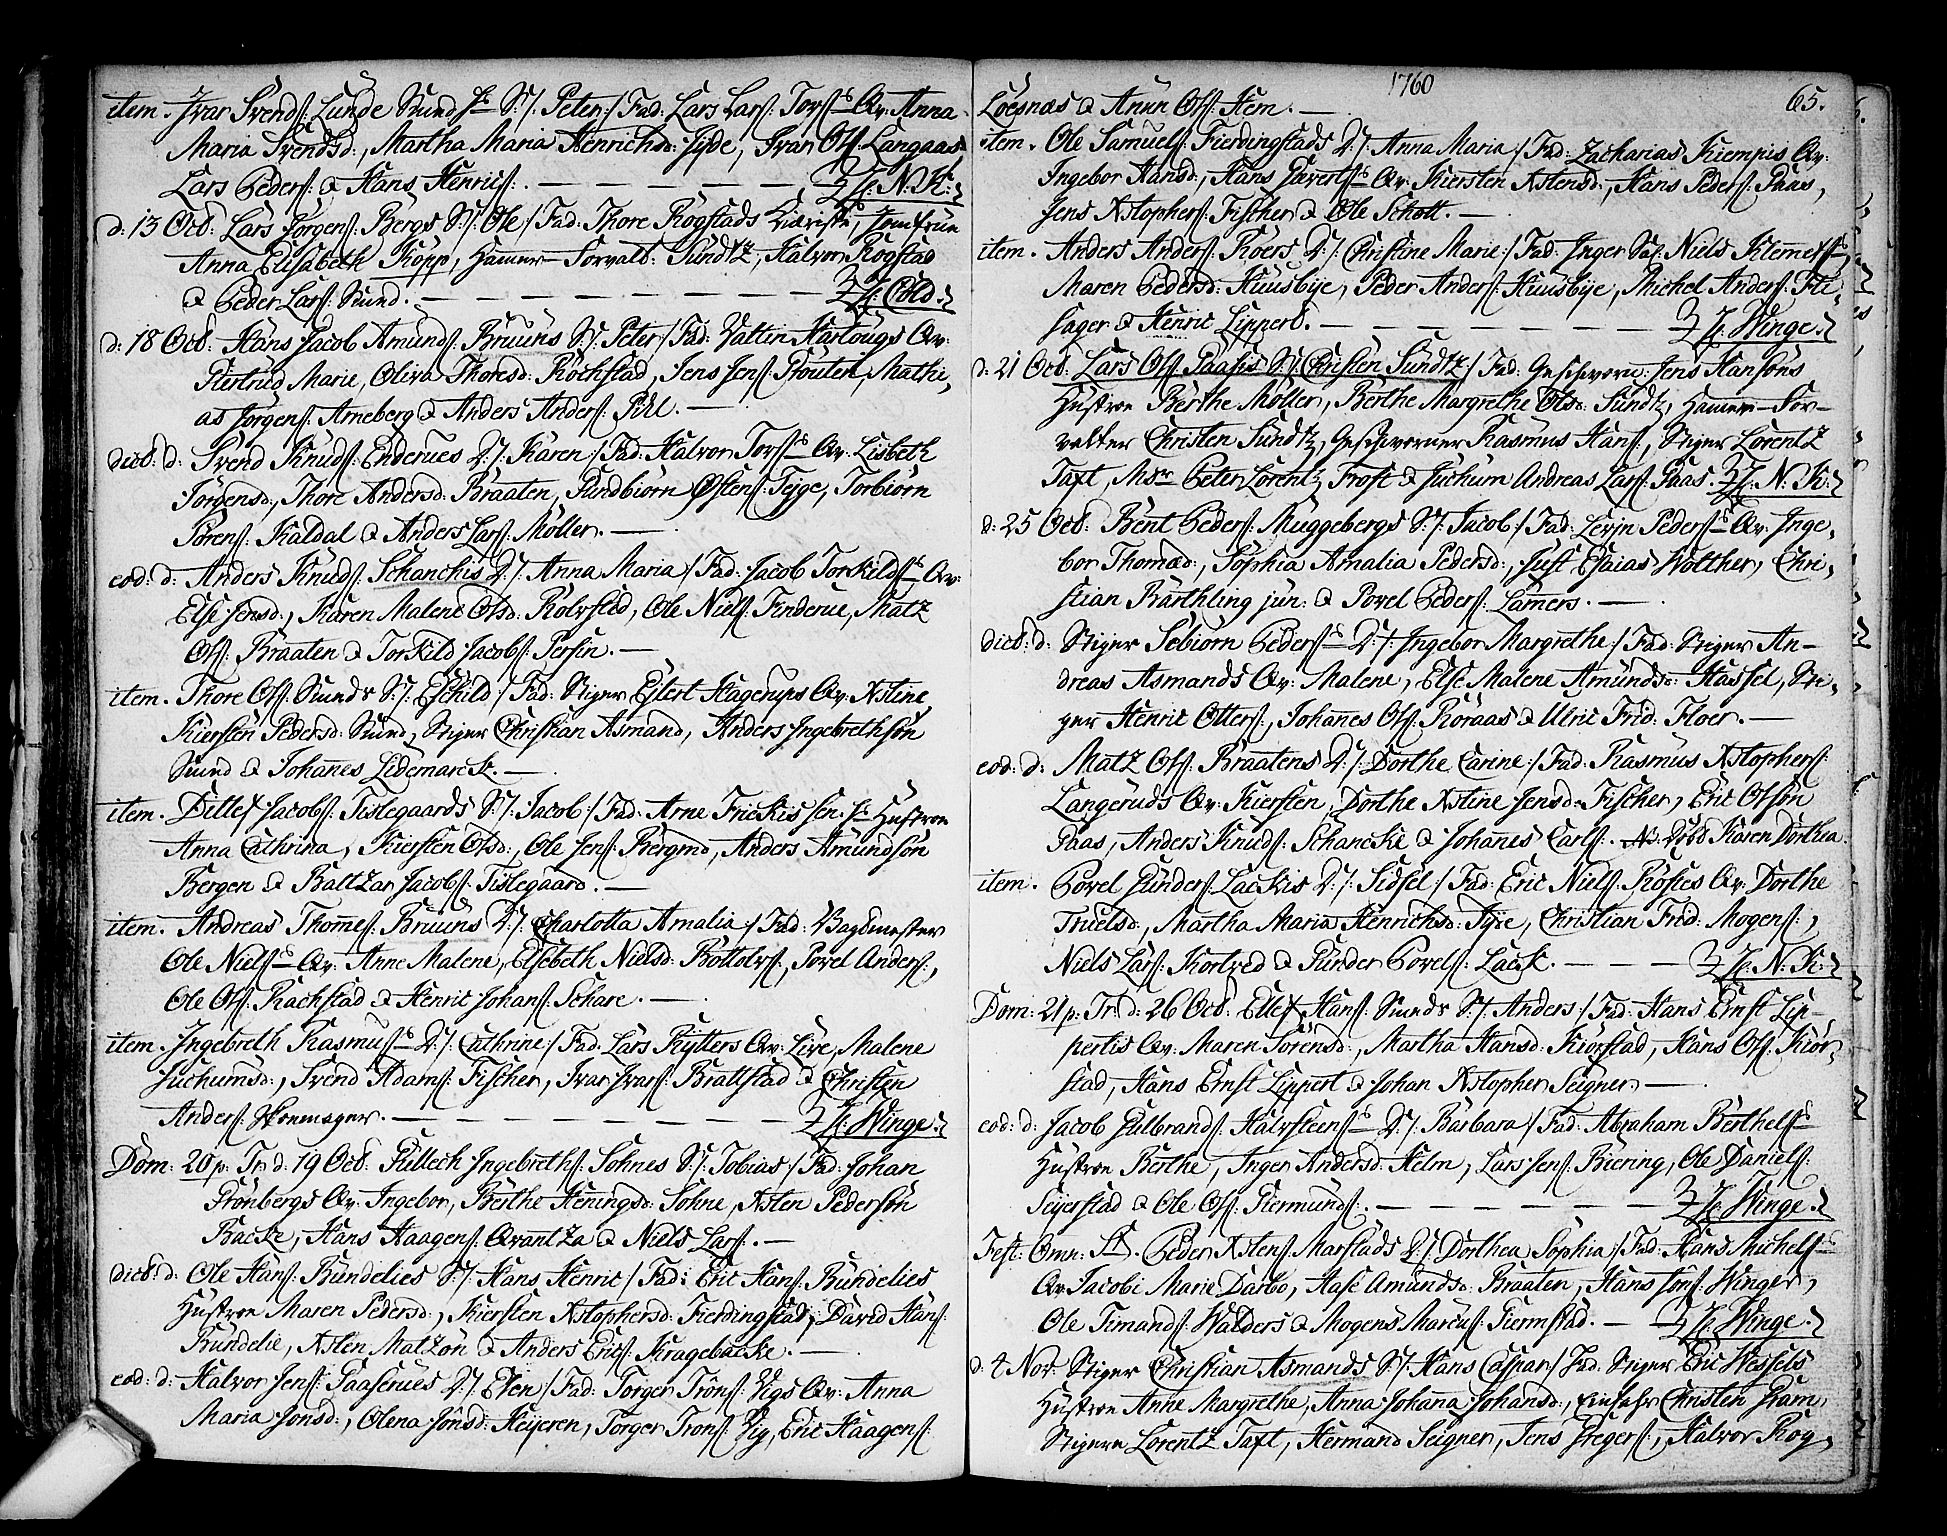 item. Ivar Svends: Lunde Sund S:/: Peter:/ Fad: Lars Lars: Tors: Qv: Anna
Maria Svendsd:, Martha Maria Henrichsd: Iyde, Ivar Ols: Langaas
Lars Peders: & Hans Henrics:. — — — — — H: N: K:
d: 13 Oct: Lars Jørgens: Bergs S:/: Ole:/ Fad: Thore Rögstads, Jomfrue
Anna Elisabeth Kopp, Hamer-Forvalt: Sundtz, Halvor Rogstad
& Peder Lars: Sund. — — — — — — H: Cold.
d: 18 Oct: Hans Jacob Amunds: Bruuns S:/: Peter/ Fad: Valtin Hartougs Qv:
Giertrud Marie, Oliva Thoresd: Rochstad, Jens Jens: Prouten, Mathi,
as Jørgens: Arneberg & Anders Anders: Pihl. —
dict: d: Svend Knuds: Enderues D:/: Karen:/ Fad: Halvor Tors: Qv: Lisbeth
Jørgensd:, Thore Andersd: Braaten, Gundbiörn Østens: Tejge, Torbiörn
Sörens: Kaldal & Anders Lars: Möller. —
eod: d: Anders Knuds: Schanchis D:/: Anna Maria:/ Fad: Jacob Torkilds: Qv:
Else Jensd:, Karen Malene Olsd: Rolvstad, Ole Niels: Finderue, Matz
Ols: Braaten & Torkild Jacobs: Persin. —
item. Thore Ols: Sunds S:/: Eschild:/ Fad: Stiger Eylert Hagerups Qv: Xstine
Kiersten Pedersd: Sund, Stiger Christian Asmand, Anders Ingebrethsön
Sund & Johannes Lidemarck. —
item. Ditlef Jacobs: Tislegaards S:/: Jacob:/ Fad: Arne Frickis sen: Hustroe
Anna Cathrina, Kiersten Olsd:, Ole Jens: Bergmd, Anders Amundsön
Bergen & Baltzar Jacobs: Tislegaard. —
item. Andreas Thomes: Bruuns D:/: Charlotta Amalia:/ Fad: Vagtmester
Ole Niels: Qv: Anne Malene, Elsebeth Nielsd: Bottolvs:, Povel Anders:,
Ole Ols: Rachstad & Henric Johans: Schare. —
item. Ingebreth Rasmus: D:/: Cathrine:/ Fad: Lars Rytters Qv: Live, Malene
Juchumsd:, Svend Adams: Fischer, Ivar Ivars: Brattstad & Christen
Anders: Skoemager. — — — — — — H: Winge.
Dom: 20 p: Tr: d: 19 Oct: Gullech Ingebreths: Sohnes S:/: Tobias:/ Fad: Johan
Grönbergs Qv: Ingebor, Berthe Heningsd: Sohne, Xsten Pedersön
Backe, Hans Haagens: Qvantza & Niels Lars:. —
dict: d: Ole Hans: Bundelies S:/: Hans Henric:/ Fad: Eric Hans: Bundelies
Hustroe Maren Pedersd:, Kiersten Xstophersd: Fierdingstad, David Hans:
Bundelie, Xsten Matzön & Anders Erics: Kragebacke. —
eod: d: Halvor Jens: Gaaserues D:/: Elen:/ Fad: Torger Trons: Vigs Qv: Anna
Maria Jonsd:, Olena Jönsd: Heyeren, Torger Trons: Vig, Eric Haagens:
1760
65.
Loesnæs & Anun Ols: Hem. —
item. Ole Samuels: Fierdingstads D:/: Anna Maria:/ Fad: Zacharias Kiempis Qv:
Ingebor Hansd:, Hans Sæverts: Qv: Kiersten Xstensd:, Hans Peders: Paas,
Jens Xstophers: Fischer & Ole Schott. —
item. Anders Anders: Roers D:/: Christine Marie:/ Fad: Inger Sal: Niels Klemets:
Maren Pedersd: Huusbye, Peder Anders: Huusbye, Michel Anders: Fli,
sager & Henric Lippert. — — — — — — H: Winge.
d: 21 Oct: Lars Ols: Paasis S:/: Christen Sundtz:/ Fad: Geschworn: Jens Hansöns
Hustroe Berthe Möller, Berthe Margrethe Olsd: Sundtz, Hamer-For-
valter Christen Sundtz, Geschworner Rasmus Hans:, Stiger Lorentz
Taft, Msr Peter Lorentz Frost & Juchum Andreas Lars: Paas. H: N: K:
d: 25 Oct: Bent Peders: Muggebergs S:/: Jacob:/ Fad: Levin Peders: Qv: Inge,
bor Thomæd:, Sophia Amalia Pedersd:, Just Esaias Wolther, Chri,
stian Bärthling jun: & Povel Peders: Lamers. —
dict: d: Stiger Sebiörn Peders: D:/: Ingebor Margrethe:/ Fad: Stiger An-
dreas Asmands Qv: Malene, Else Malene Amundsd: Hassel, Sti,
ger Henric Otters:, Johanes Ols: Roraas & Ulric Frid: Floer. —
eod: d: Matz Ols: Braatens D:/: Dorthe Carine:/ Fad: Rasmus Xstophers:
Langeruds Qv: Kiersten, Dorthe Xstine Jensd: Fischer, Eric Olsön
Paas, Anders Knuds: Schancke & Johanes Carls:. N: Döbt Karen Dorthea.
item. Povel Gunders: Lackis D:/: Sidsel:/ Fad: Eric Niels: Kosties Qv: Dorthe
Truelsd:, Martha Maria Henrichsd: Iyje, Christian Frid: Mogens:,
Niels Lars: Kortved & Gunder Povels: Lack. — — — H: N: K:
Dom: 21 p: Tr: d: 26 Oct: Ellef Hans: Sunds S:/: Anders:/ Fad: Hans Ernst Lip-
pertis Qv: Maren Sörensd:, Martha Hansd: Kiörstad, Hans Ols: Kiör-
stad, Hans Ernst Lippert & Johan Xstopher Seigner. —
eod: d: Jacob Gulbrands: Halvsteens: D:/: Barbara:/ Fad: Abraham Berthels:
Hustroe Berthe, Inger Andersd: Helm, Lars Jens: Biering, Ole Daniels:
Seyerstad & Ole Ols: Giermunds:. — — — — — H: Winge.
Fest: Omn: St: Peder Xstens: Marstads D:/: Dorthea Sophia:/ Fad: Hans Michels:
Qv: Jacobi Marie Darbo, Aase Amundsd: Braaten, Hans Jöns: Winger,
Ole Timands: Walders & Mogens Marcus: Giermstad. — H: Winge.
d: 4 Nov: Stiger Christian Asmands S:/: Hans Caspar:/ Fad: Stiger Eric Wessels
Hustroe Anne Margrethe, Anna Johana Johansd:, Einfahr: Christen Gram,
Stigere Lorentz Taft, Hermand Seigner, Jens Gregers:, Halvor Rog,